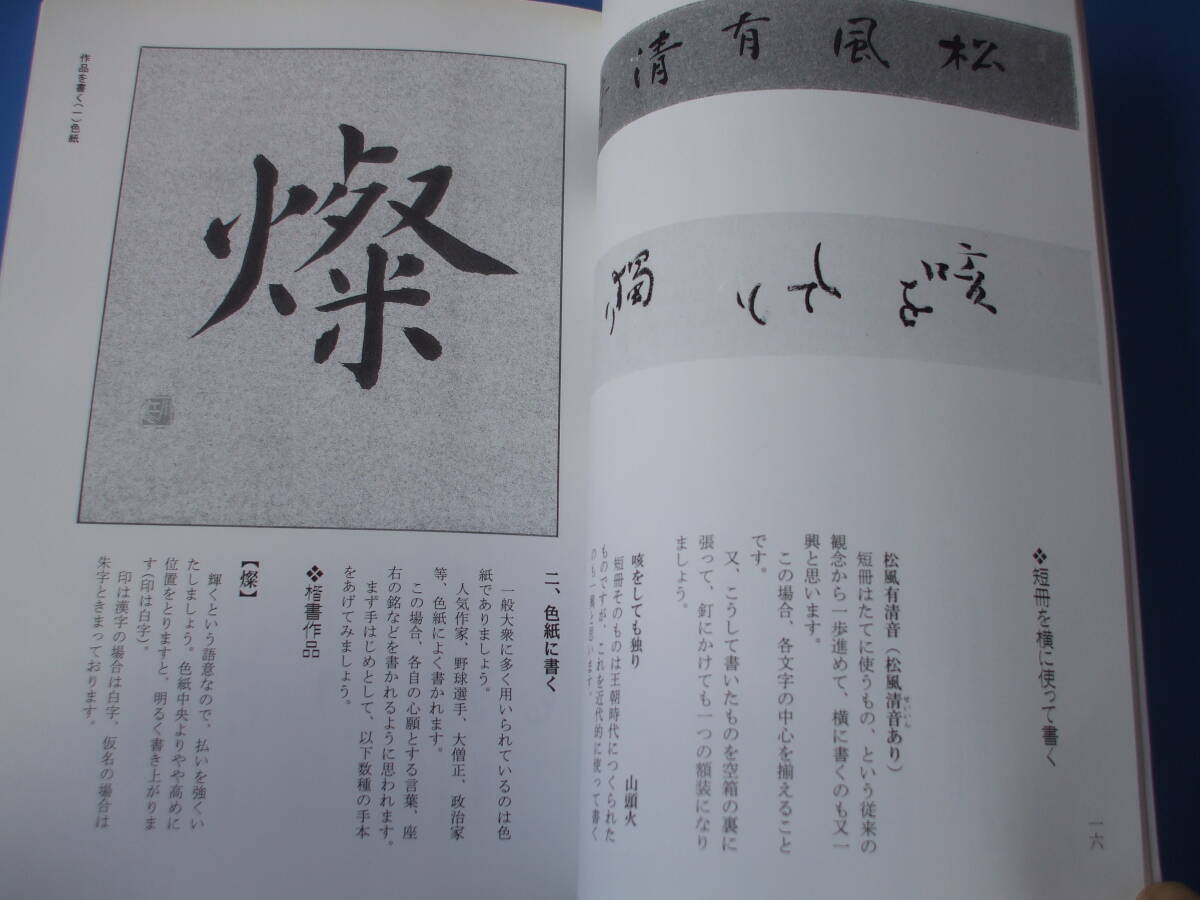 松風有清
咳をしてし独り
❖短冊を横に使って書く
松風有清音（松風清音あり）
せいいん
短冊はたてに使うもの、という従来の
観念から一歩進めて、横に書くのも又一
興と思います。
この場合、各文字の中心を揃えること
です。
又、こうして書いたものを空箱の裏に
張って、釘にかけても一つの額装になり
ましょう。
咳をしても独り　山頭火
短冊そのものは王朝時代につくられた
ものですが、これを近代的に使って書く
のも一興と思います。
一六
作品を書く（一）色紙
燦
二、色紙に書く
一般大衆に多く用いられているのは色
紙でありましょう。
人気作家、野球選手、大僧正、政治家
等、色紙によく書かれます。
この場合、各自の心願とする言葉、座
右の銘などを書かれるように思われます。
まず手はじめとして、以下数種の手本
をあげてみましょう。
❖楷書作品
【燦】
輝くという語意なので、払いを強くい
たしましょう。色紙中央よりやや高めに
位置をとりますと、明るく書き上がりま
す（印は白字）。
印は漢字の場合は白字、仮名の場合は
朱字ときまっております。